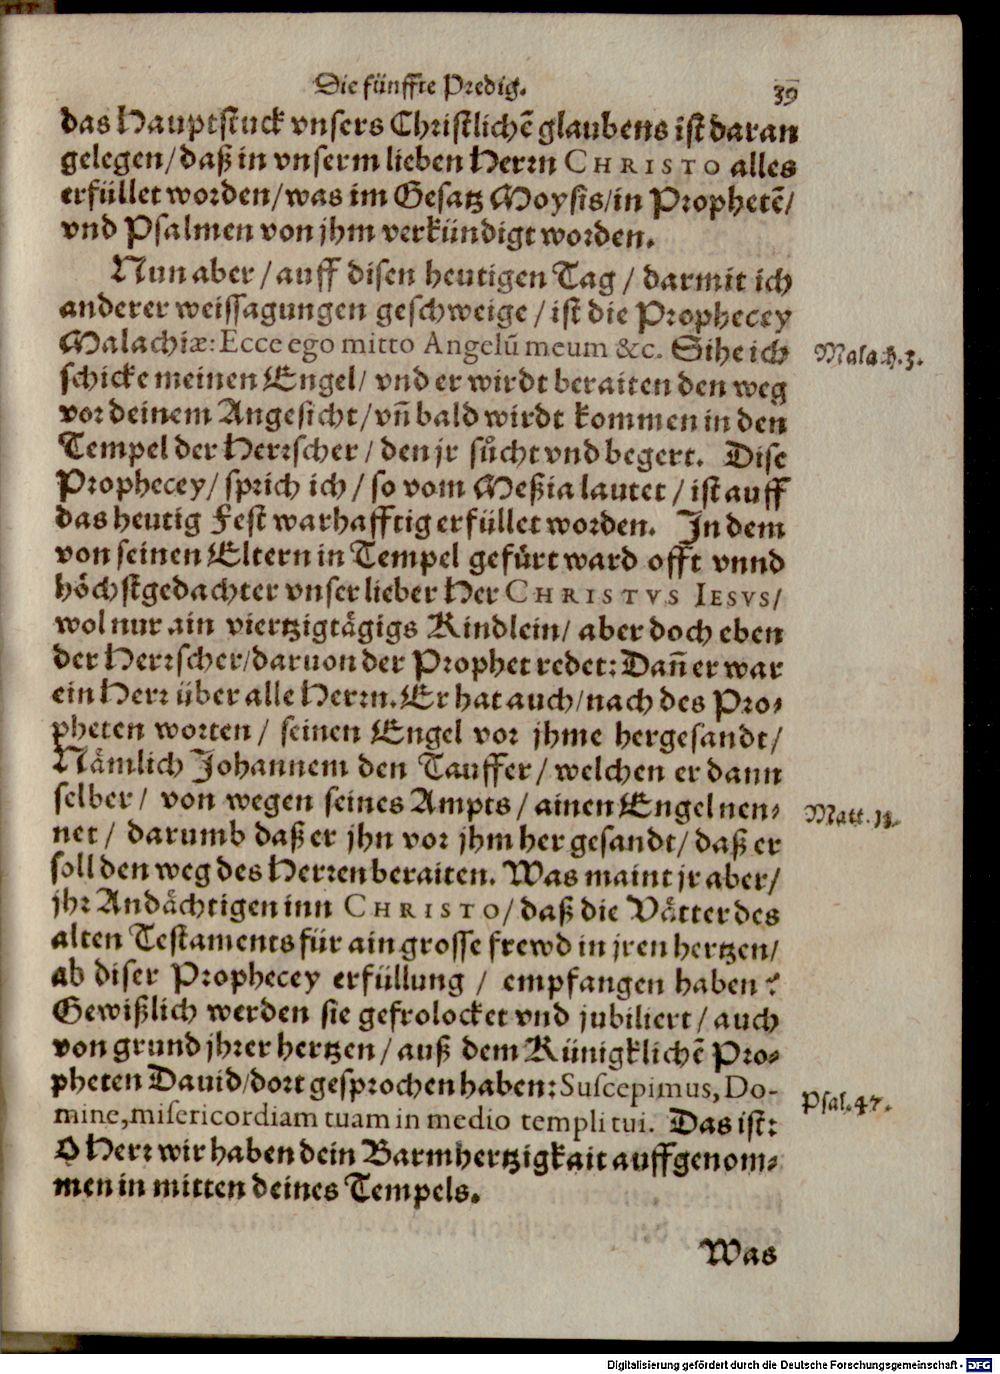 Die fünffte Predig. 39
das Hauptstuck vnsers Christlichẽ glaubens ist daran
gelegen/ daß in vnserm lieben Herrn CHRISTO alles
erfüllet worden/ was im Gesatz Moysis/ in Prophetẽ/
vnd Psalmen von jhm verkündigt worden.
Nun aber/ auff disen heutigen Tag/ darmit ich
anderer weissagungen geschweige/ ist die Prophecey
Malachiæ: Ecce ego mitto Angelũ meum &c. Sihe ich
Malach. 3.
schicke meinen Engel/ vnd er wirdt beraiten den weg
vor deinem Angesicht/ vñ bald wirdt kommen in den
Tempel der Herrscher/ den jr sůcht vnd begert. Dise
Prophecey/ sprich ich/ so vom Meßia lautet/ ist auff
das heutig Fest warhafftig erfüllet worden. In dem
von seinen Eltern in Tempel gefürt ward offt vnnd
höchstgedachter vnser lieber Her CHRISTVS IESVS/
wol nur ain viertzigtägigs Kindlein/ aber doch eben
der Herrscher/ daruon der Prophet redet: Dañ er war
ein Herr über alle Herrn. Er hat auch/ nach des Pro-
pheten worten/ seinen Engel vor jhme hergesandt/
Nämlich Johannem den Tauffer/ welchen er dann
selber/ von wegen seines Ampts/ ainen Engel nen-
Matt. 11.
net/ darumb daß er jhn vor jhm her gesandt/ daß er
soll den weg des Herren beraiten. Was maint jr aber/
jhr Andächtigen inn CHRISTO/ daß die Vätter des
alten Testaments für ain grosse frewd in jren hertzen/
ab diser Prophecey erfüllung/ empfangen haben?
Gewißlich werden sie gefrolocket vnd jubiliert/ auch
von grund jhrer hertzen/ auß dem Künigklichẽ Pro-
pheten Dauid/ dort gesprochen haben: Suscepimus, Do-
Psal. 47.
mine, misericordiam tuam in medio templi tui. Das ist:
O Herr wir haben dein Barmhertzigkait auffgenom-
men in mitten deines Tempels.
Was
Digitalisierung gefördert durch die Deutsche Forschungsgemeinschaft - DFG